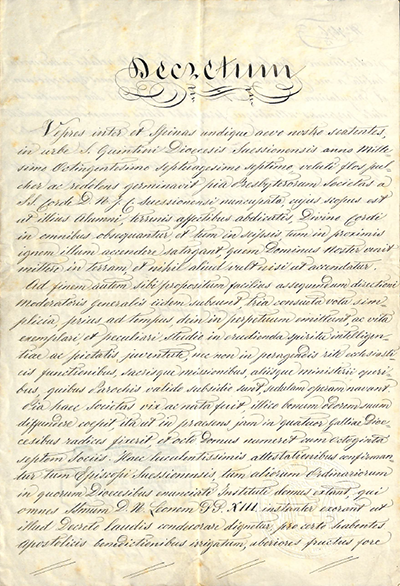 Decretum
Vepres inter et Spinas undique aevo nostro scatentes,
in urbe S. Quintini Dioecesis Suessionensis anno Mille
simo Octingentesimo Septuagesimo septimo veluti flos pul
cher ac redolens germinavit pia Presbyterorum Societas a
SS. Corde D. N. J. C. Suessionensi nuncupata, cujus scopus est
ut illius Alumni, terrenis affectibus abdicatis, Divino Cordi
in omnibus obsequantur, et tum in seipsis tum in proximis
ignem illum accendere satagant, quem Dominus Noster venit
mittere in terram, et nihil aliud vult nisi ut accendatur.
Ad finem autem sibi propositum facilius assequendum directioni
Moderatoris Generalis iidem subsunt, tria consueta vota sim
plicia prius ad tempus dein in perpetuum emittunt, ac vita
exemplari, et peculiari studio in erudienda spiritu intelligen
tiae ac pietatis juventute, nec non in peragendis rite ecclesiasti
cis functionibus, sacrisque missionibus, aliisque ministerii operi
bus, quibus Parochis valido subsidio sunt, sedulam operam navant.
Pia haec Societas vix ac nata fuit, illico bonum odorem suum
diffundere coepit ita ut in praesens jam in quatuor Galliae Dioe
cesibus radices fixerit, et octo Domus numeret cum octoginta
septem Sociis. Haec luculentissimis attestationibus confirman
tur tum Episcopi Suessionensis tum aliorum Ordinariorum
in quorum Dioecesibus enunciati Instituti domus extant, qui
omnes Smum D. N. Leonem PP. XIII instanter exorant ut
illud Decreto laudis condecorare dignetur, pro certo habentes
Apostolicis benedictionibus irrigatum, uberiores fructus fore